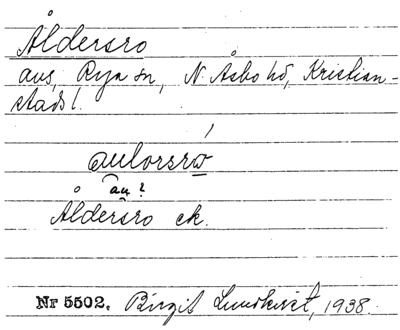 Åldersro
avs, Rya sn, N. Åsbo hd, Kristian-
stads l.
aulorsrω
au?
Åldersro ek.
Nr 5502. Birgit Lundkvist, 1938.